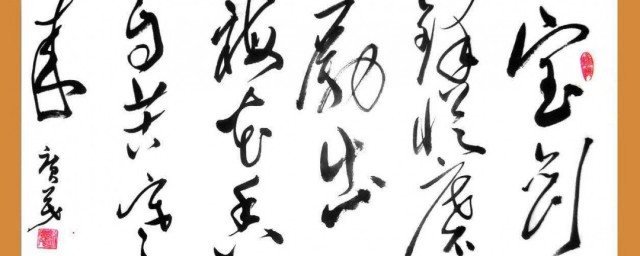 宝剑
锋从磨
励出
梅花香
自苦寒
来